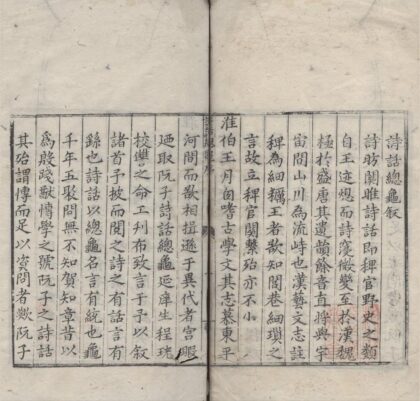 詩話總龜敘
詩昉關雎詩話即稗官野史之類
自王迹熄而詩寖微變至於漢魏
極於盛唐其遺韻餘音直將與宇
宙間山川為流峙也漢藝文志註
稗為細糲王者欲知閭巷細瑣之
言故立稗官關繫殆亦不小
淮伯王月嗜古學文其志慕東平
河間而欲相揖遜于異代者宮暇
迺取阮子詩話總龜延庠生程珖
校讐之命工刊布致言于予以敘
諸首予披而閱之詩之有話言有
繇也詩話以總龜名言有統也龜
千年五聚問無不知賀知章昔以
為殷踐猷博學之號阮子之詩話
其殆謂傳而足以資問者歟阮子